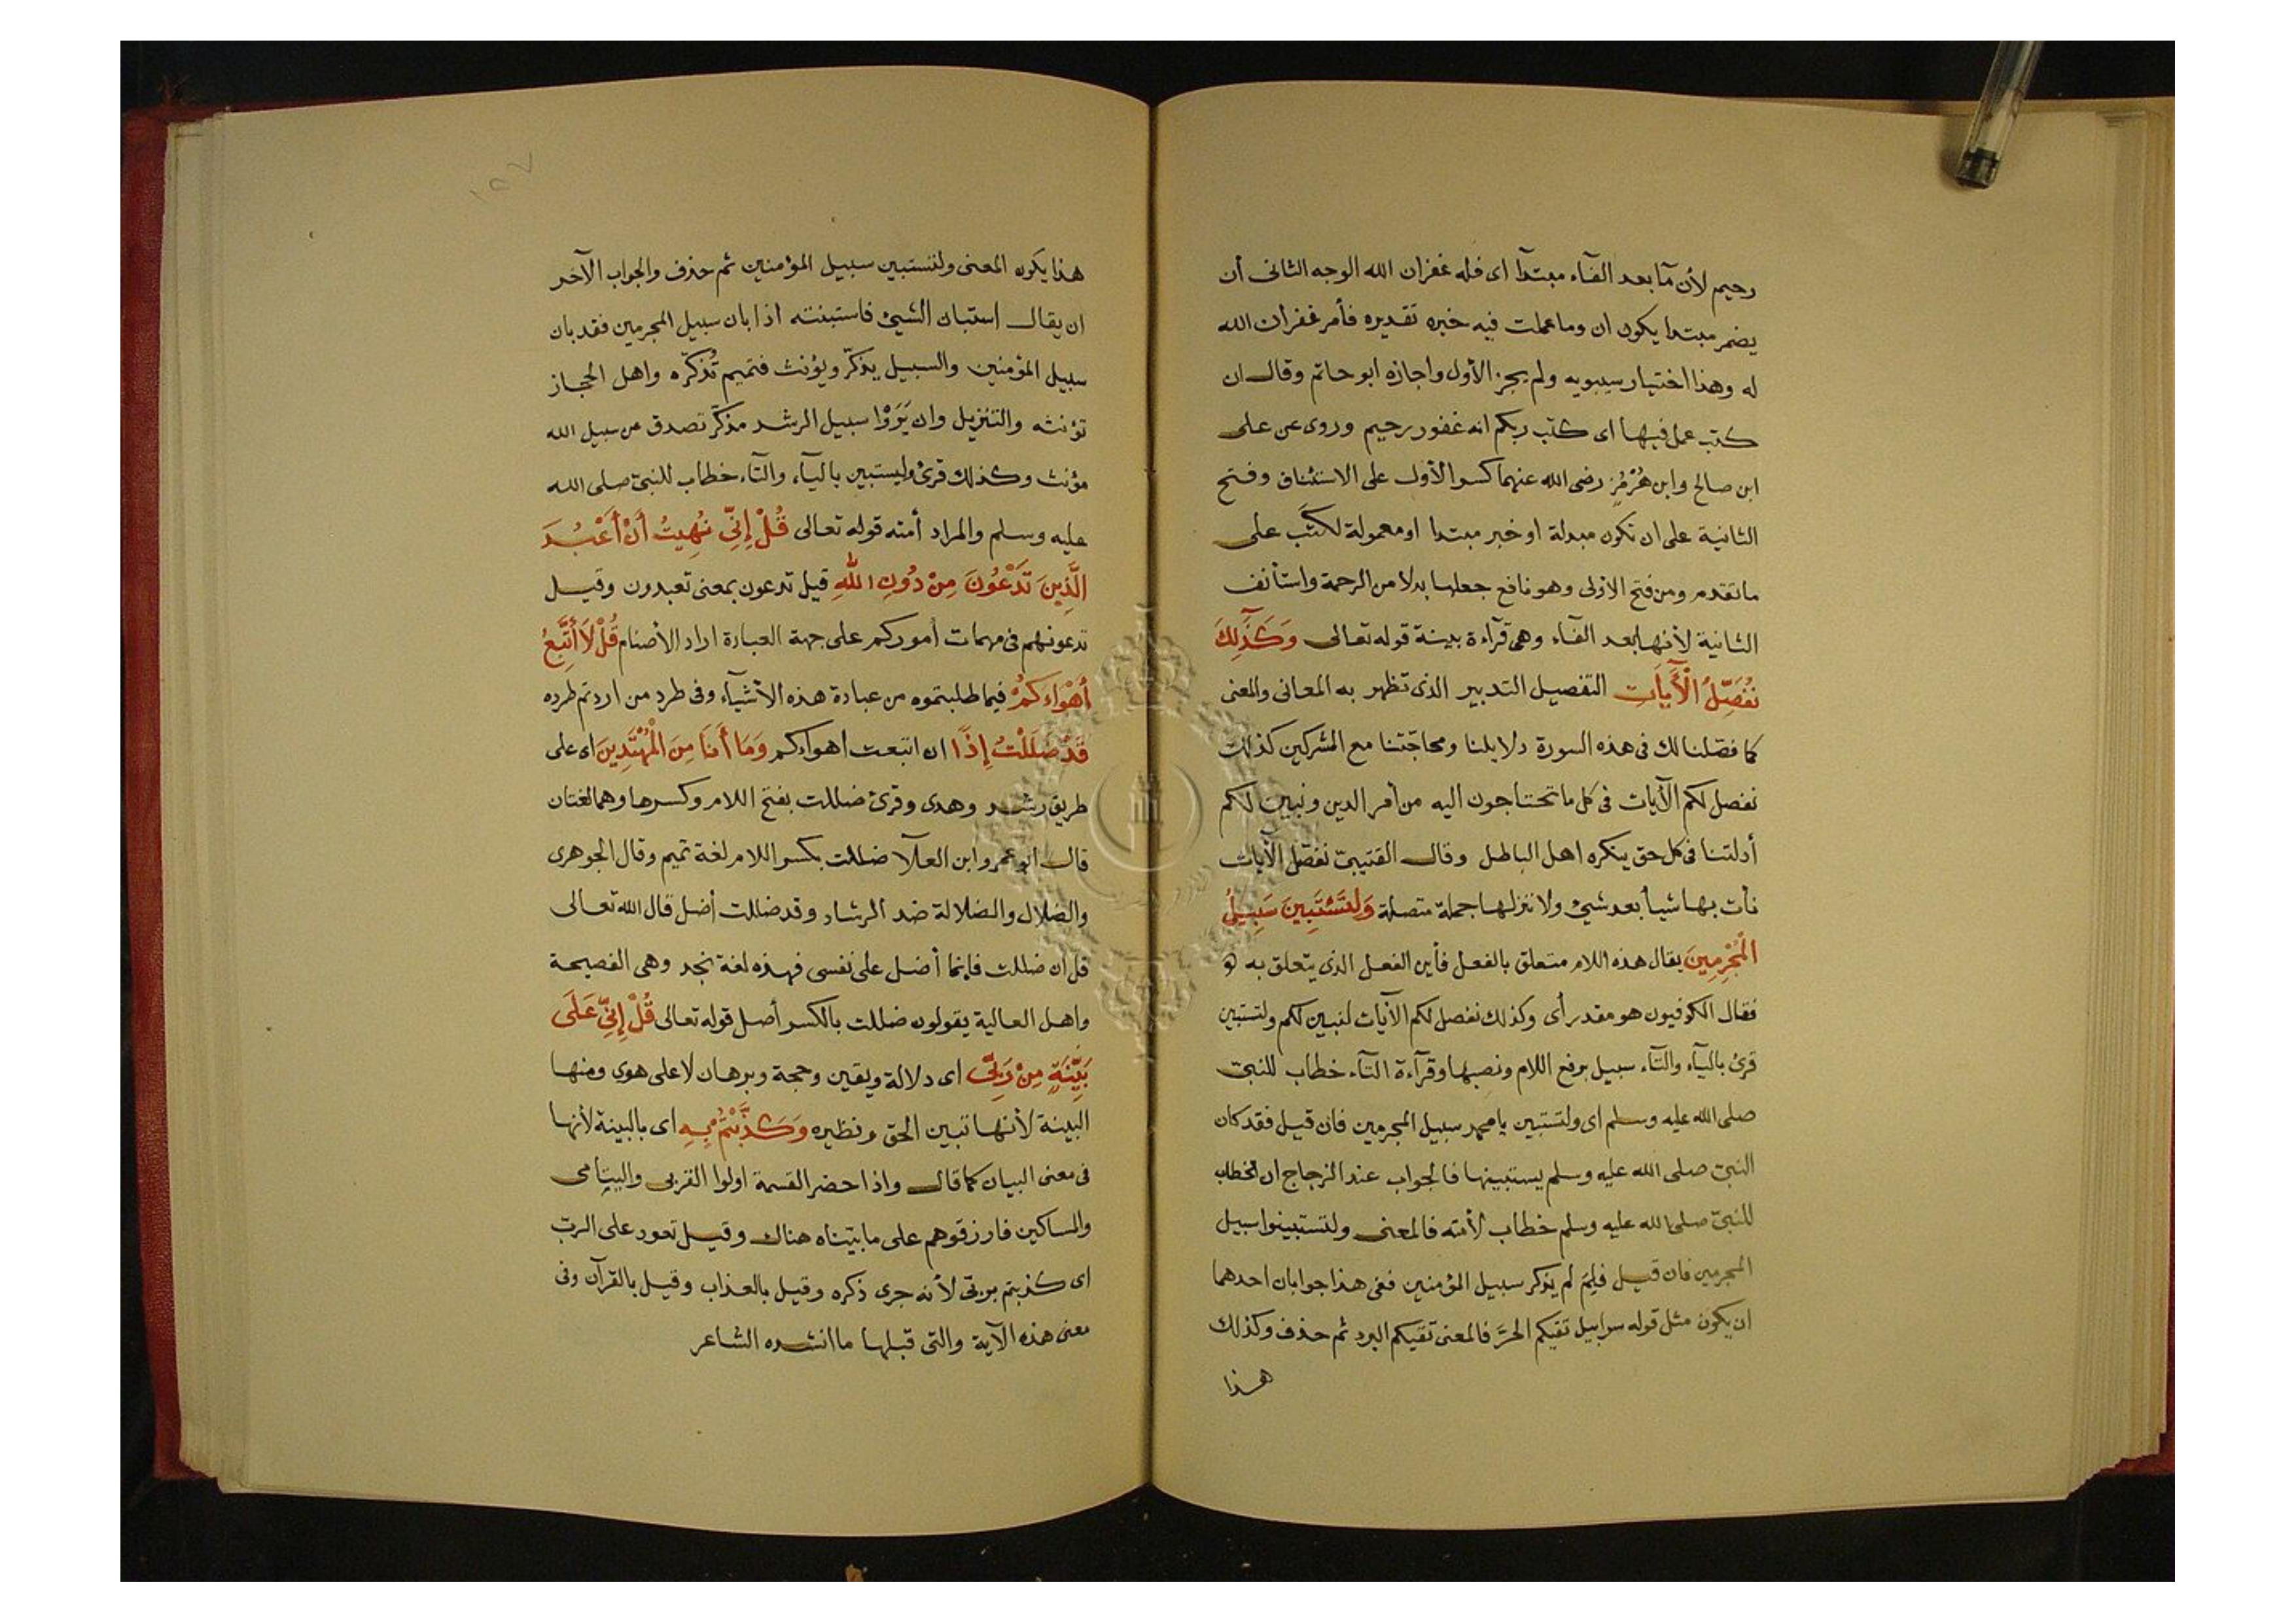 رحيم لأن مآ بعد الفآء مبتدآ اى فله غفران الله الوجه الثانى أن
يضمر مبتدا يكون ان وما عملت فيه خبره تقديره فأمر غفران الله
له وهذا اختيار سيبويه ولم يجز الأول واجازه ابو حاتم وقال ان
كتب عمل فيها اى كتب ربكم انه غفور رحيم وروى عن على
ابن صالح وابن هُرْمُزٍ رضى الله عنهما كسر الأول على الاستئناف وفتح
الثانية على ان تكون مبدلة او خبر مبتدا او معمولة لكتَب على
ما تقدم ومن فتح الاولى وهو نافع جعلها بدلا من الرحمة واستأنف
الثانية لأنها بعد الفآء وهى قرآءة بينة قوله تعالى وَكَذَٰلِكَ
نُفَصِّلُ الْآيَاتِ التفصيل التدبير الذى تظهر به المعانى والمعنى
كما فصّلنا لك فى هذه السورة دلايلنا ومحاجّتنا مع المشركين كذلك
نفصل لكم الآيات فى كل ما تحتاجون اليه من أمر الدين ونبين لكم
أدلتنا فى كل حق ينكره اهل الباطل وقال القتيبىّ نفصّل الآيات
نأت بها شيأ بعد شيئ ولا ننزلها جملة متصلة وَلِتَسْتَبِينَ سَبِيلُ
الْمُجْرِمِينَ يقال هذه اللام متعلق بالفعل فأين الفعل الذى يتعلق به
فقال الكوفيون هو مقدر أى وكذلك نفصل لكم الآيات لنبين لكم ولتستبين
قرئ باليآء والتآء سبيل برفع اللام ونصبها وقرآءة التآء خطاب للنبىّ
صلى الله عليه وسلم اى ولتستبين يا محمد سبيل المجرمين فان قيل فقد كان
النبىّ صلى الله عليه وسلم يستبينها فالجواب عند الزجاج ان الخطاب
للنبىّ صلى الله عليه وسلم خطاب لأمته فالمعنى ولتستبينوا سبيل
المجرمين فان قيل فلِمَ لم يذكر سبيل المؤمنين ففى هذا جوابان احدهما
ان يكون مثل قوله سرابيل تقيكم الحرّ فالمعنى تقيكم البرد ثم حذف وكذلك
هذا
١٥٧
هذا يكون المعنى ولتستبين سبيل المؤمنين ثم حذف والجواب الآخر
ان يقال استبان الشيئ فاستبنته اذا بان سبيل المجرمين فقد بان
سبيل المؤمنين والسبيل يذكّر ويؤنث فتميم تُذكّره واهل الحجاز
تؤنثه والتنزيل وان يَرَوْا سبيل الرشد مذكّر تصدق عن سبيل الله
مؤنث وكذلك قرئ وليستبين باليآء والتآء خطاب للنبىّ صلى الله
عليه وسلم والمراد أمته قوله تعالى قُلْ إِنِّى نُهِيتُ أَنْ أَعْبُدَ
الَّذِينَ تَدْعُونَ مِنْ دُونِ اللهِ قيل تدعون بمعنى تعبدون وقيل
تدعونهم فى مهمات أموركم على جهة العبادة اراد الأصنام قُلْ لَا أَتَّبِعُ
أَهْوَاءَكُمْ فيما طلبتموه من عبادة هذه الأشيآء وفى طرد من اردتم طرده
قَدْ ضَلَلْتُ إِذًا ان اتبعت اهواءكم وَمَا أَنَا مِنَ الْمُهْتَدِينَ اى على
طريق رشد وهدى وقرئ ضللت بفتح اللام وكسرها وهما لغتان
قال ابو عمرو ابن العلآ ضللت بكسر اللام لغة تميم وقال الجوهرى
والضلال والضلالة ضد الرشاد وقد ضللت أضل قال الله تعالى
قل ان ضللت فإنما أضل على نفسى فهذه لغة نجد وهى الفصيحة
واهل العالية يقولون ضللت بالكسر أضل قوله تعالى قُلْ إِنِّى عَلَى
بَيِّنَةٍ مِنْ رَبِّى اى دلالة ويقين وحجة وبرهان لا على هوى ومنها
البينة لأنها تبين الحق وتظهره وَكَذَّبْتُمْ بِهِ اى بالبينة لأنها
فى معنى البيان كما قال واذا حضر القسمة اولوا القربى واليتامى
والمساكين فارزقوهم على ما بيّناه هناك وقيل تعود على الربّ
اى كذبتم بربّى لأنه جرى ذكره وقيل بالعذاب وقيل بالقرآن وفى
معنى هذه الآية والتى قبلها ما انشده الشاعر